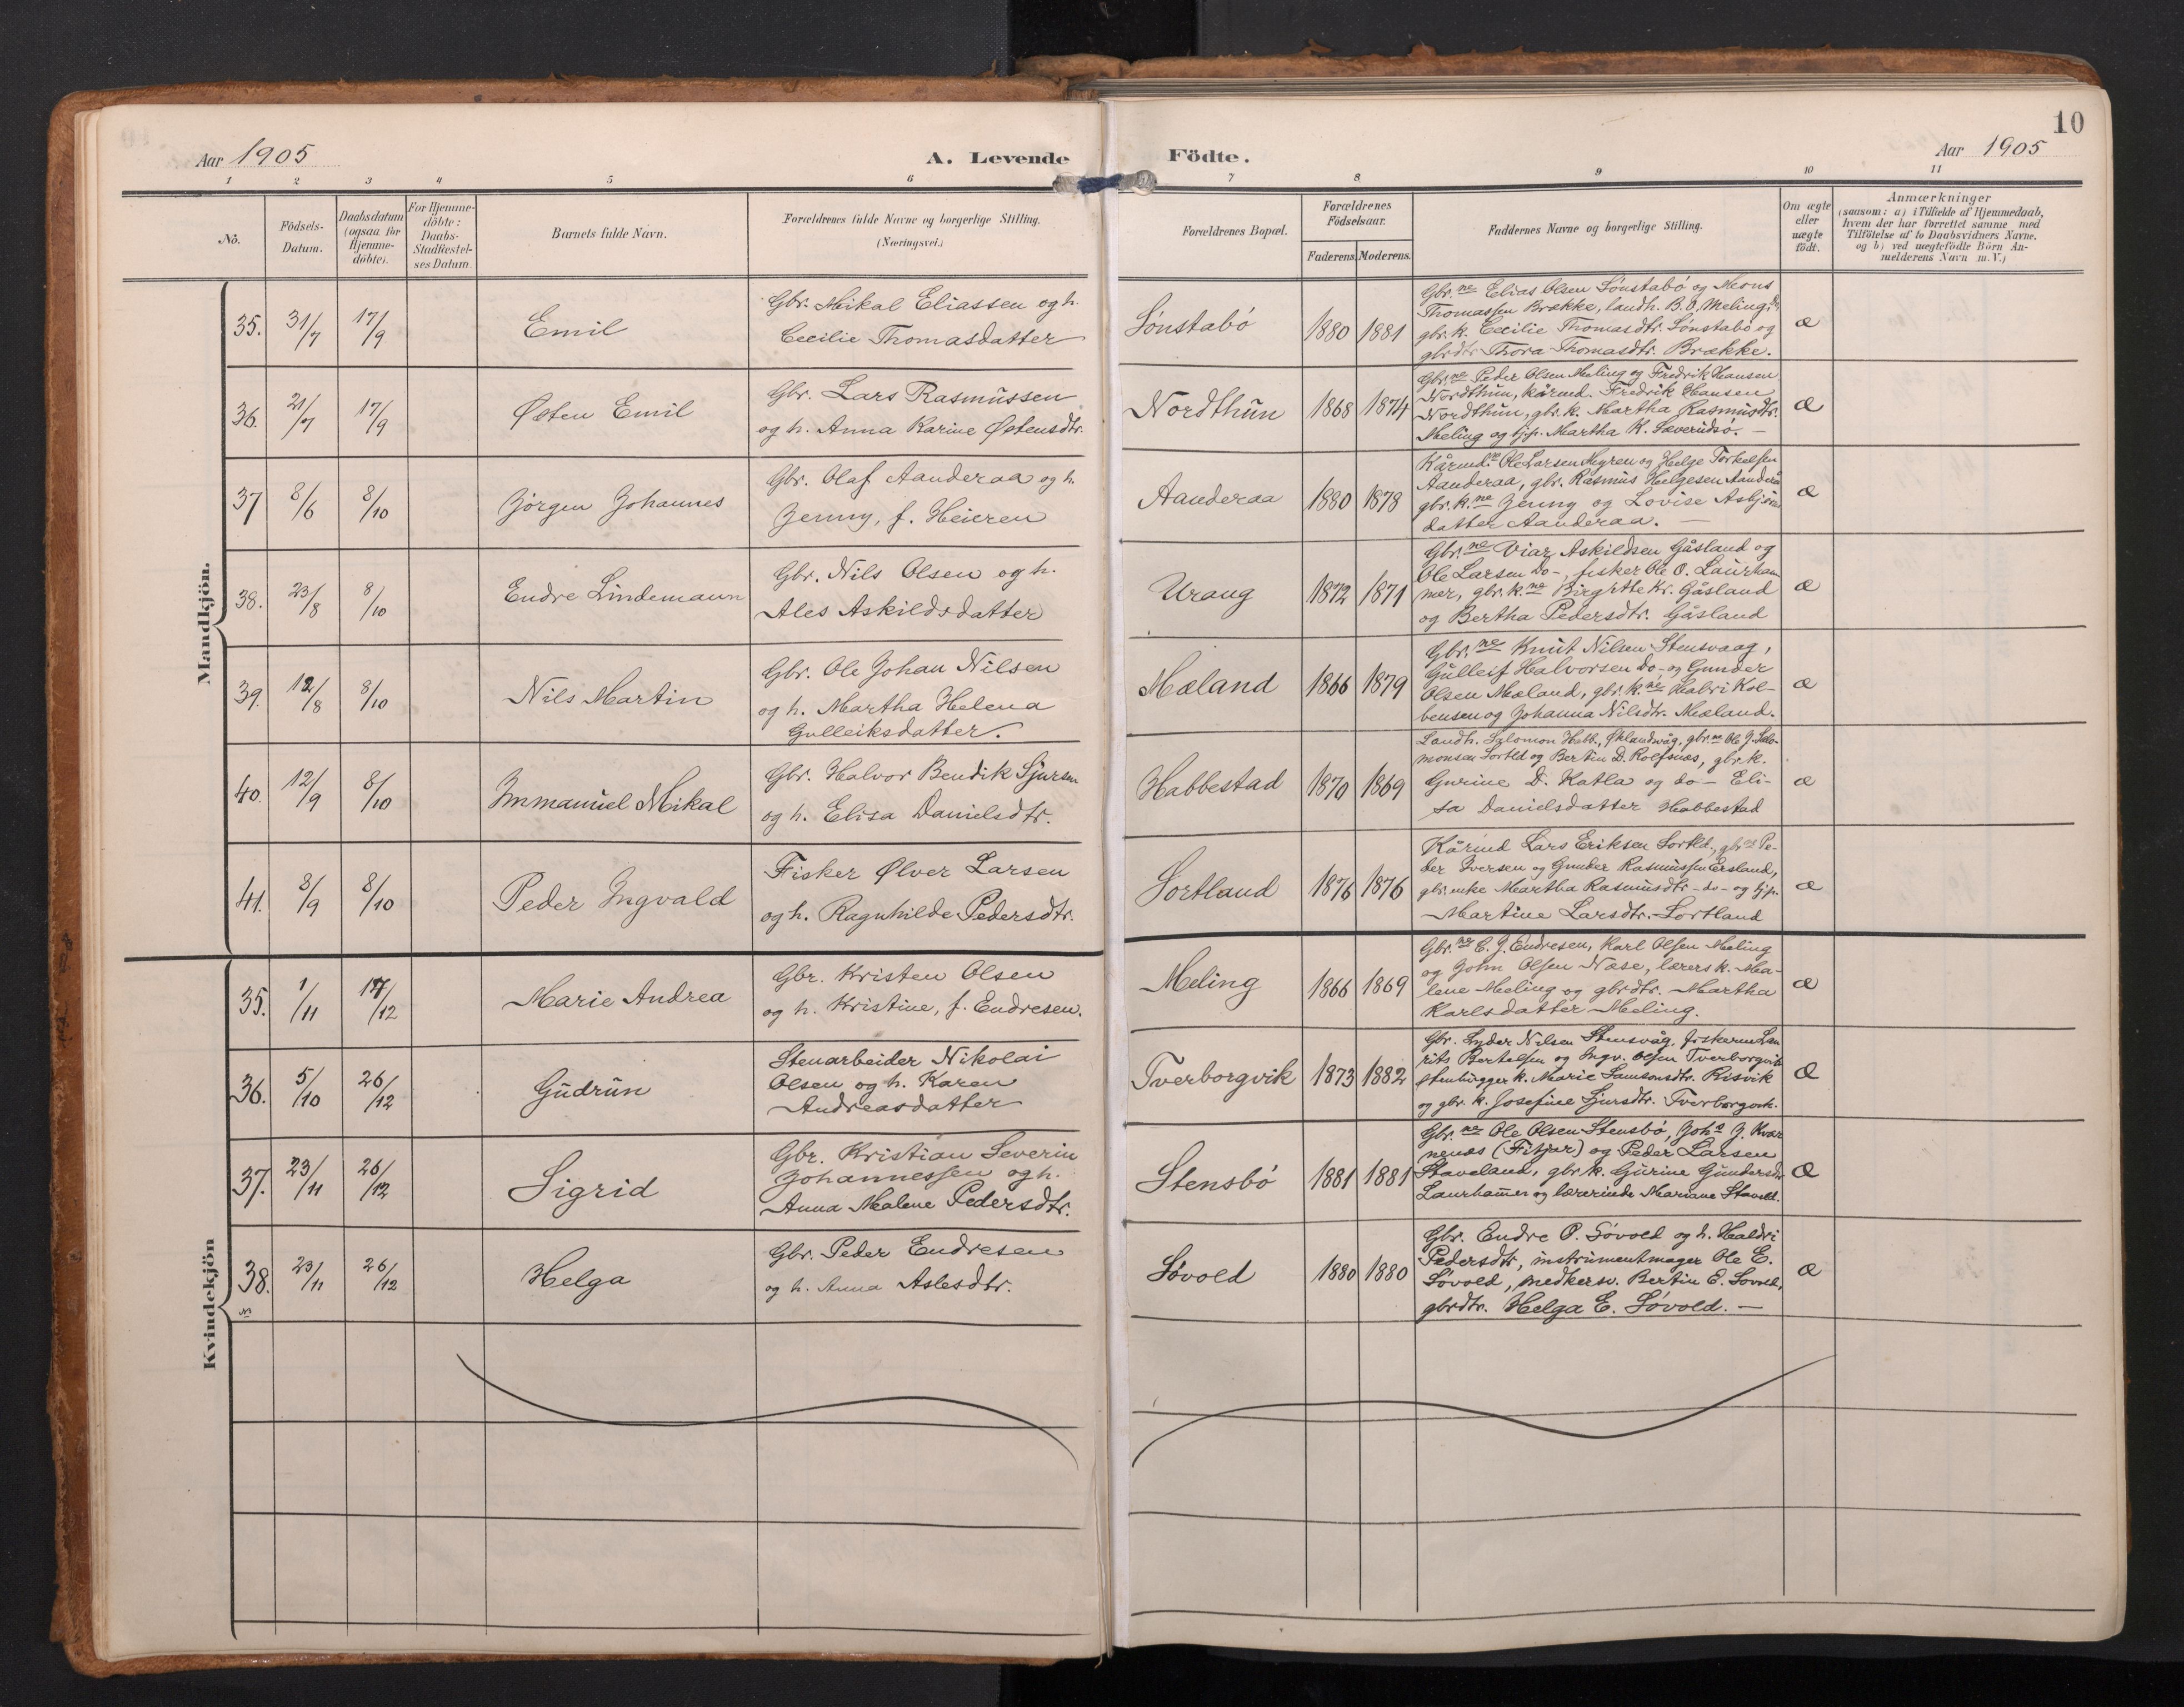 10
Aar 1905
A. Levende Födte.
Aar 1905
1 2 3 4 5 6 7 8 9 10 11
No.
Födsels-Datum.
Daabsdatum (ogsaa for Hjemme-döbte).
For Hjemme-döbte: Daabs-Stadfæstel-ses Datum.
Barnets fulde Navn.
Forældrenes fulde Navne og borgerlige Stilling.
(Næringsvei.)
Forældrenes Bopæl.
Forældrenes Födselsaar.
Faderens. Moderens.
Faddernes Navne og borgerlige Stilling.
Om ægte eller uægte födt.
Anmærkninger
(saasom: a) i Tilfælde af Hjemmedaab,
hvem der har forrettet samme med
Tilföielse af to Daabsvidners Navne,
og b) ved uægtefödte Börn An-
melderens Navn m.V.)
Mandkjön.
35. 31/7 17/9 Emil
Gbr. Mikal Eliassen og h.
Cecilie Thomasdatter
Sónstabó 1880 1881
Gbr.ne Elias Olsen Sónstabó og Mons
Thomassen Brække, landh. B. O. Meling,
gbr. k. Cecilie Thomasdtr. Sónstabó og
gbrdtr Thora Thomasdtr. Brække.
æ
36. 21/7 17/9 Østen Emil
Gbr. Lars Rasmussen
og h. Anna Karine Østensdtr.
Nordthun 1868 1874
Gbr.ne Peder Olsen Meling og Fredrik Hansen
Nordthun, kårmd. Fredrik Hansen
Nordthun, gbr. k. Martha Rasmusdtr.
Meling og tjp. Martha K. Sæverudsó. —
æ
37 8/6 8/10 Jórgen Johannes
Gbr. Olaf Aanderaa og h.
Jenny, f. Heieren
Aanderaa 1880 1878
Kårmd.ne Ole Larsen Myren og Helge Torkelsen
Aanderaa, gbr. Rasmus Helgesen Aanderå
gbr. k.ne Jenny og Lovise Asbjórns
datter Aanderaa. —
æ
38. 23/8 8/10 Endre Lindemann
Gbr. Nils Olsen og h.
Ales Askildsdatter
Urang 1872 1871
Gbr.ne Viar Askildsen Gåsland og
Ole Larsen do-, fisker Ole O. Laurham
mer, gbr. k.ne Birgitte Kr. Gåsland
og Bertha Pedersdtr. Gåsland
æ
39. 12/8 8/10 Nils Martin
Gbr. Ole Johan Nilsen
og h. Martha Helena
Gulleiksdatter.
Mæland 1866 1879
Gbr.ne Knut Nilsen Stensvaag,
Gulleif Halvorsen do- og Gunder
Olsen Mæland, gbr. k.ne Habri Kol-
bensen og Johanna Nilsdtr. Mæland.
æ
40. 12/9 8/10 Immanuel Mikal
Gbr. Halvor Bendik Sjursen
og h. Elisa Danielsdtr.
Habbestad 1870 1869
Landh. Salomon Habb., Øklandvåg, gbr.ne Ole J. Salo-
monsen Sortld og Bertin D. Rolfsnæs, gbr. k.
Gurine D. Katla og do — Eli-
sa Danielsdatter Habbestad
æ
41. 8/9 8/10 Peder Ingvald
Fisker Ølver Larsen
og h. Ragnhilde Pedersdtr.
Sortland 1876 1876
Kårmd Lars Eriksen Sortld., gbr.ne Pe-
der Iversen og Gunder Rasmussen Ersland,
gbr. enke Martha Rasmusdtr -do- og tjp.
Martine Larsdtr. Sortland
æ
Kvindekjön
35. 1/11 17/12 Marie Andrea
Gbr. Kristen Olsen
og h. Kristine, f. Endresen.
Meling 1866 1869
Gbr.ne C. J. Endresen, Karl Olsen Meling
og John Olsen Næse, lærers k. Ma-
lene Meling og gbrdtr. Martha
Karlsdatter Meling.
æ
36. 5/10 26/12 Gudrun
Stenarbeider Nikolai
Olsen og h. Karen
Andreasdatter
Tverborgvik 1873 1882
Gbr. Lyder Nilsen Stensvåg, fiskerne Lau
rits Bertelsen og Ingv. Olsen Tverborgvik
stenhugger k. Marie Samsonsdtr. Risvik
og gbr. k. Josefine Sjursdtr. Tverborgvik.
æ
37. 23/11 26/12 Sigrid
Gbr. Kristian Severin
Johannessen og h.
Anna Malene Pedersdtr.
Stensbó 1881 1881
Gbr.ne Ole Olsen Stensbó, Johs J. Kvar
nenæs (Fitjar) og Peder Larsen
Staveland, gbr k. Gurine Gundersdtr
Laurhammer og lærerinde Mariane Stavelt.
æ
38. 23/11 26/12 Helga
Gbr. Peder Endresen
og h. Anna Aslesdtr.
Sóvold 1880 1880
Gbr. Endre P. Sóvold og h. Haldri
Pedersdtr, instrumentmager Ole E.
Sóvold, snedkersv. Bertin E. Sovold,
gbrdtr. Helga E. Sóvold. —
æ